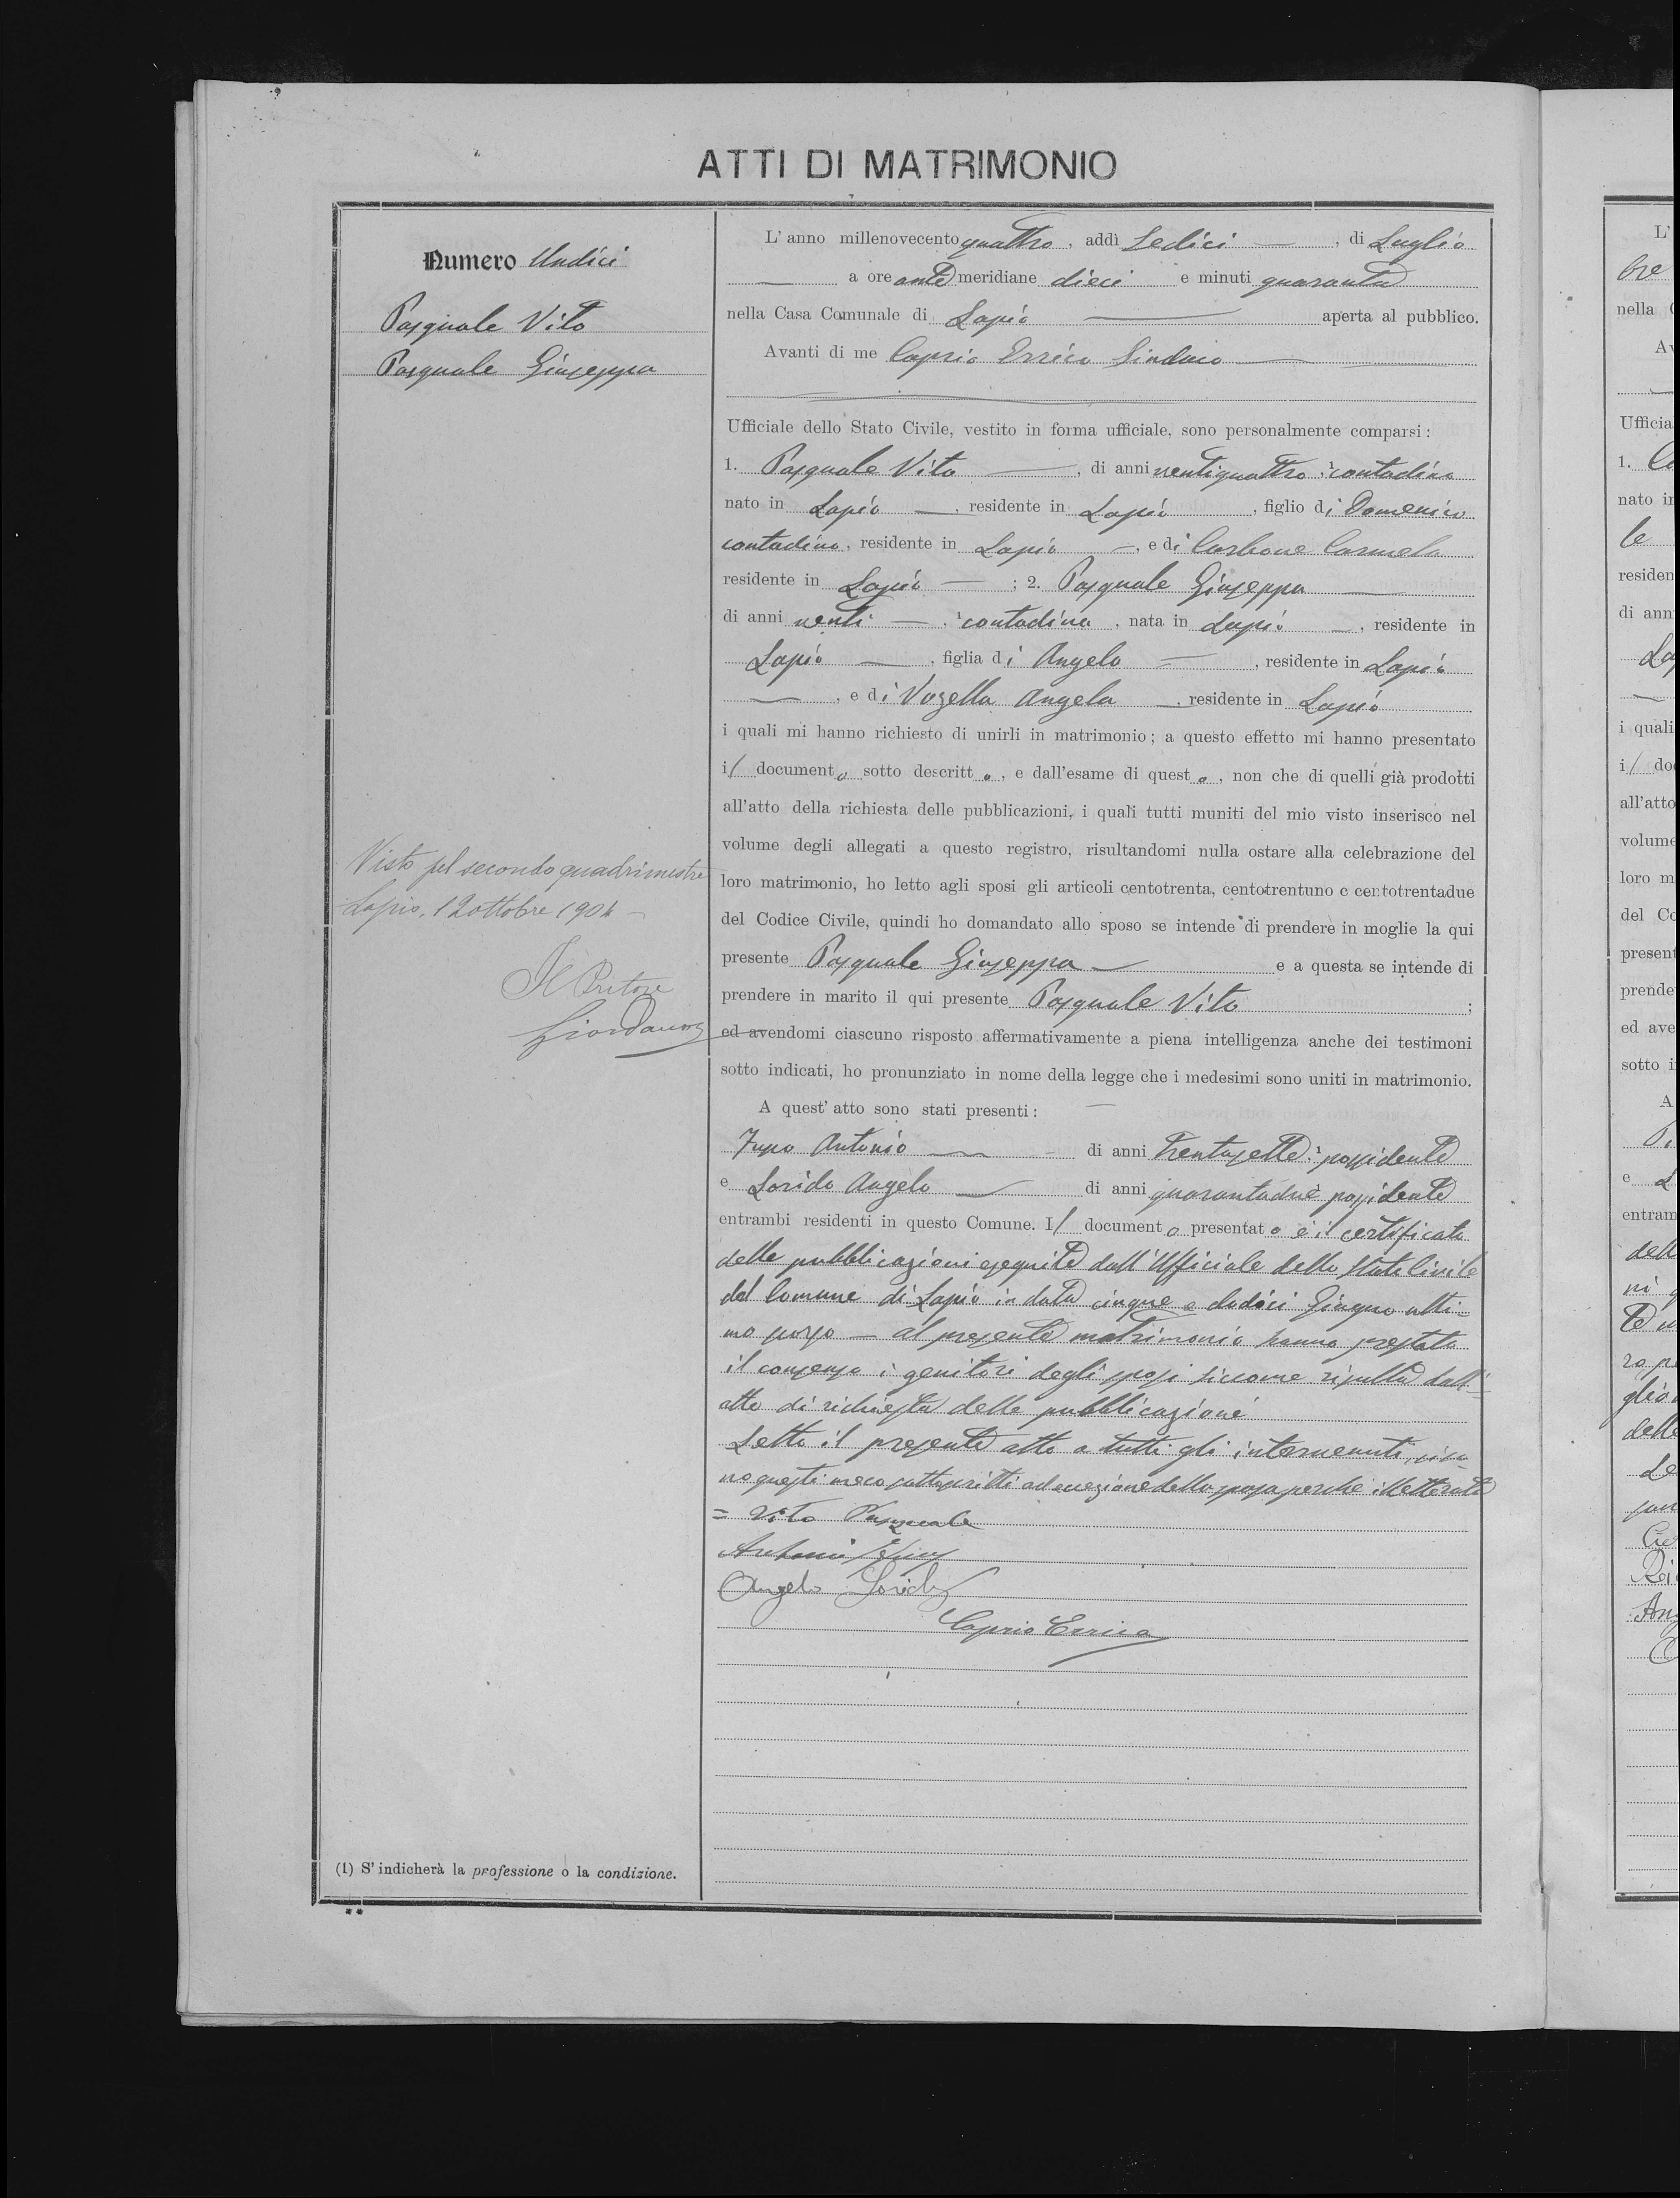 ATTI DI MATRIMONIO
Numero Undici
Pasquale Vito
Pasquale Giuseppa
Visto pel secondo quadrimestre
Lapio, 12 ottobre 1904
Il Pretore
Giordano
(1) S'indicherà la professione o la condizione.
L'anno millenovecento quattro, addì Sedici, di Luglio
a ore antemeridiane dieci e minuti quaranta
nella Casa Comunale di Lapio aperta al pubblico.
Avanti di me Caprio Errico Sindaco
Ufficiale dello Stato Civile, vestito in forma ufficiale, sono personalmente comparsi:
1. Pasquale Vito, di anni ventiquattro, contadino
nato in Lapio, residente in Lapio, figlio di Domenico
contadino, residente in Lapio, e di Carbone Carmela
residente in Lapio; 2. Pasquale Giuseppa
di anni venti, contadina, nata in Lapio, residente in
Lapio, figlia di Angelo, residente in Lapio
, e di Vozella Angela, residente in Lapio
i quali mi hanno richiesto di unirli in matrimonio; a questo effetto mi hanno presentato
il documento sotto descritto, e dall'esame di questo, non che di quelli già prodotti
all'atto della richiesta delle pubblicazioni, i quali tutti muniti del mio visto inserisco nel
volume degli allegati a questo registro, risultandomi nulla ostare alla celebrazione del
loro matrimonio, ho letto agli sposi gli articoli centotrenta, centotrentuno e centotrentadue
del Codice Civile, quindi ho domandato allo sposo se intende di prendere in moglie la qui
presente Pasquale Giuseppa e a questa se intende di
prendere in marito il qui presente Pasquale Vito;
ed avendomi ciascuno risposto affermativamente a piena intelligenza anche dei testimoni
sotto indicati, ho pronunziato in nome della legge che i medesimi sono uniti in matrimonio.
A quest'atto sono stati presenti:
Antonio di anni trentasette, possidente
e Lorido Angelo di anni quarantadue possidente
entrambi residenti in questo Comune. Il documento presentato è il certificato
delle pubblicazioni eseguite dall'Ufficiale dello Stato Civile
del Comune di Lapio in data cinque e dodici Giugno ulti=
mo scorso — al presente matrimonio hanno prestato
il consenso i genitori degli sposi siccome risulta dall'=
atto di richiesta delle pubblicazioni
Letto il presente atto a tutti gli intervenuti,
no questi meco sottoscritti ad eccezione della sposa perché illetterata
= Vito Pasquale
Antonio
Angelo Lorido
Caprio Errico